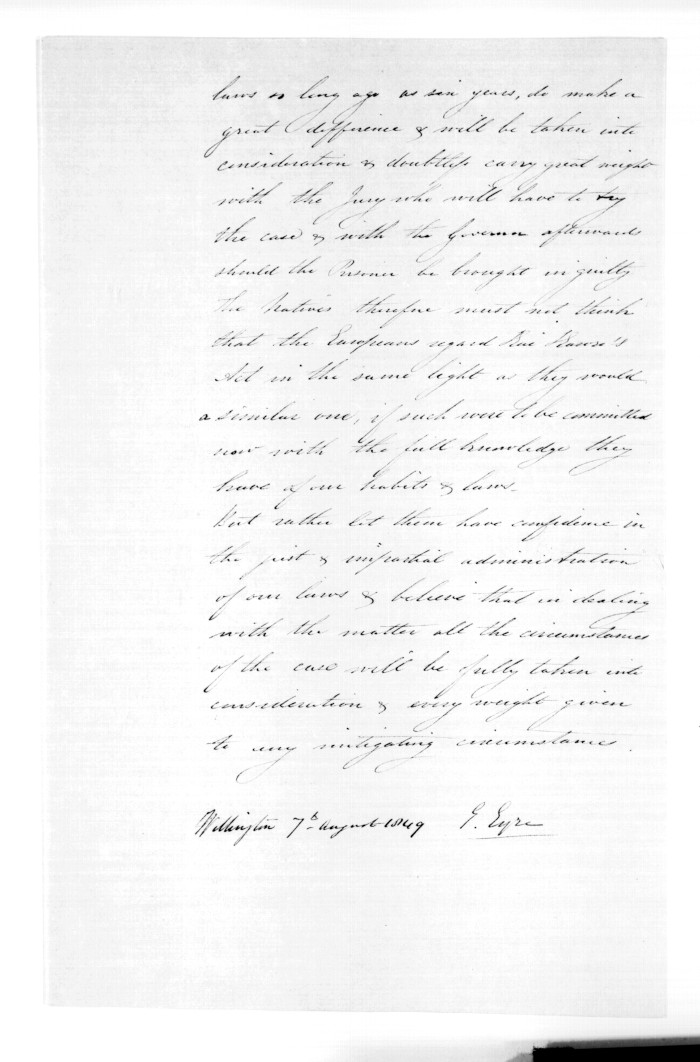 laws so long ago as six years, do make a
great difference & will be taken into
consideration & doubtless carry great weight
with the Jury who will have to try
the case & with the Governor afterwards
should the Prisoner be brought in guilty
The Natives therefore must not think
that the Europeans regard
Act in the same light as they would
a similar one, if such were to be committed
now with the full knowledge they
have of our habits & laws.
But rather let them have confidence in
the just & impartial administration
of our laws & believe that in dealing
with the matter all the circumstances
of the case will be fully taken into
consideration & every weight given
to any mitigating circumstances.
Wellington 7th August 1849 E. Eyre